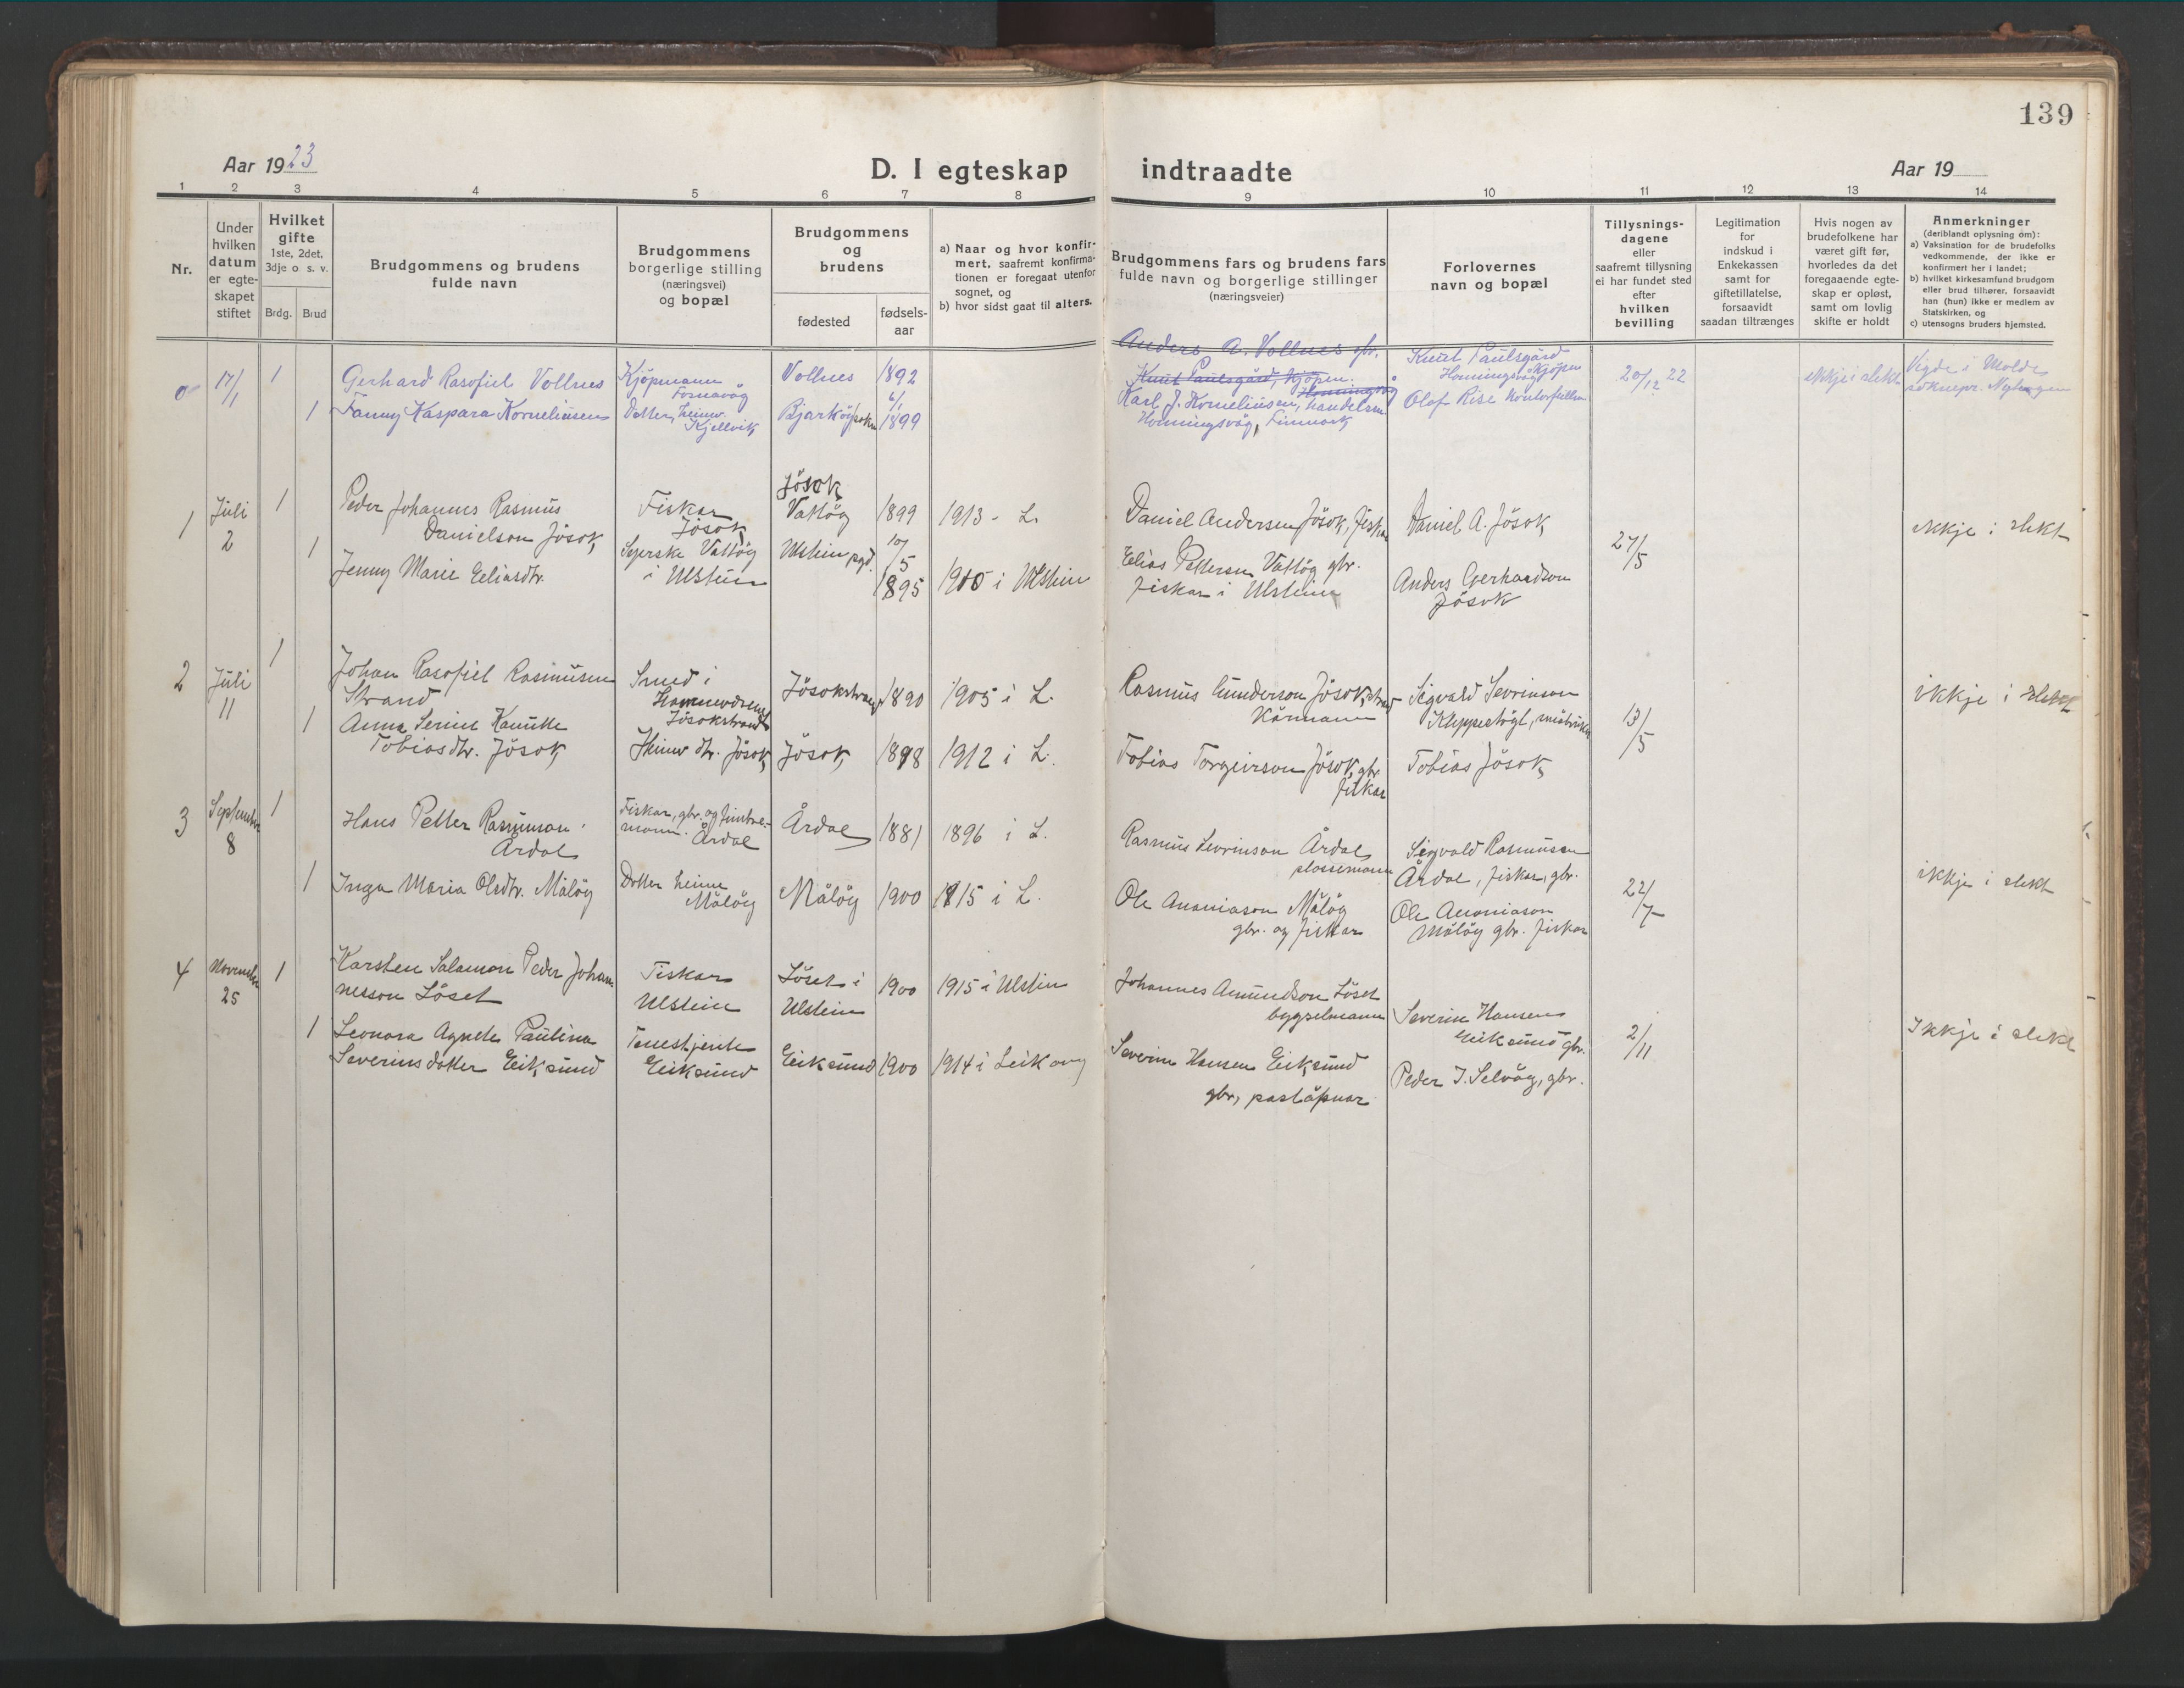 139
Aar 1923
D. I egteskap indtraadte
Aar 19
1 2 3 4 5 6 7 8 9 10 11 12 13 14
Nr.
Under hvilken datum er egte-skapet stiftet
Hvilket gifte 1ste, 2det, 3dje o s. v.
Brdg. Brud
Brudgommens og brudens fulde navn
Brudgommens borgerlige stilling (næringsvei) og bopæl
Brudgommens og brudens
fødested
fødsels-aar
a) Naar og hvor konfir-mert, saafremt konfirma-tionen er foregaat utenfor sognet, og
b) hvor sidst gaat til alters.
Brudgommens fars og brudens fars fulde navn og borgerlige stillinger (næringsveier)
Forlovernes navn og bopæl
Tillysnings-dagene eller saafremt tillysning ei har fundet sted efter hvilken bevilling
Legitimation for indskud i Enkekassen samt for giftetillatelse, forsaavidt saadan tiltrænges
Hvis nogen av brudefolkene har været gift før, hvorledes da det foregaaende egte-skap er opløst, samt om lovlig skifte er holdt
Anmerkninger
(deriblandt oplysning om):
a) Vaksination for de brudefolks vedkommende, der ikke er konfirmert her i landet;
b) hvilket kirkesamfund brudgom eller brud tilhører, forsaavidt han (hun) ikke er medlem av Statskirken, og
c) utensogns bruders hjemsted.
0 17/1 1 Gerhard Rasofiel Vollnes Kjöpmann Fosnavåg Vollnes 1892
Anders A. Vollnes gbr.
Knut Paulsgård, kjöpm. Honningsvåg
Knut Paulsgård Honningsvåg kjöpm
20/12 22
ikkje i slekt
Vigde i Molde
1 Fanny Kaspara Korneliusen Dotter, heime Kjellvik Bjarköy sokn 6/1 1899
Karl J. Korneliusen, handelsm Honningsvåg, Finmark
Olaf Rise
1 Juli 2 1 Peder Johannes Rasmus Danielson Jösok Fiskar Jösok Jösok Vattöy 1899 1913 - L.
Daniel Andersen Jösok, fiskar
Daniel A. Jösok
27/5
ikkje i slekt
1 Jenny Marie Eeliasdtr. Syerske Vattöy i Ulstein Ulstein pgd. 10/5 1895 1910 i Ulstein
Elias Pettersen Vattöy gbr. fiskar i Ulstein
Anders Gerhardson Jösok
2 Juli 11 1 Johan Rasofiel Rasmusen Strand Smed i Jösokstrand Jösokstrand 1890 1905 i L.
Rasmus Gunderson Jösokstrand Kårmann
Sigvald Sevrinson
13/5
ikkje i slekt
1 Anna Serine Kamille Tobiasdtr. Jösok Heimv. dtr. Jösok Jösok 1898 1912 i L.
Tobias Torgeirson Jösok, gbr. fiskar
Tobias Jösok
3 September 8 1 Hans Petter Rasmuson Årdal Fiskar, gbr. og Årdal Årdal 1881 1896 i L.
Rasmus Sevrinson Årdal plassemann
Sigvald Rasmusen Årdal, fiskar, gbr.
22/7
ikkje i slekt
1 Inga Maria Olsdtr. Målöy Dotter heime Målöy Målöy 1900 1915 i L.
Ole Ananiason Målöy gbr. og fiskar
Ole Ananiason Målöy gbr. fiskar
4 November 25 1 Karsten Salamon Peder Johannesson Löset Fiskar Ulstein Löset i Ulstein 1900 1915 i Ulstein
Johannes Amundson Löset bygselmann
Severin Hansen Eiksund gbr.
2/11
Ikkje i slekt
1 Leonora Agnete Paulina Severinsdotter Eiksund Tenestjente Eiksund Eiksund 1900 1914 i Leikong
Severin Hansen Eiksund gbr, poståpnar
Peder J. Selvåg, gbr.